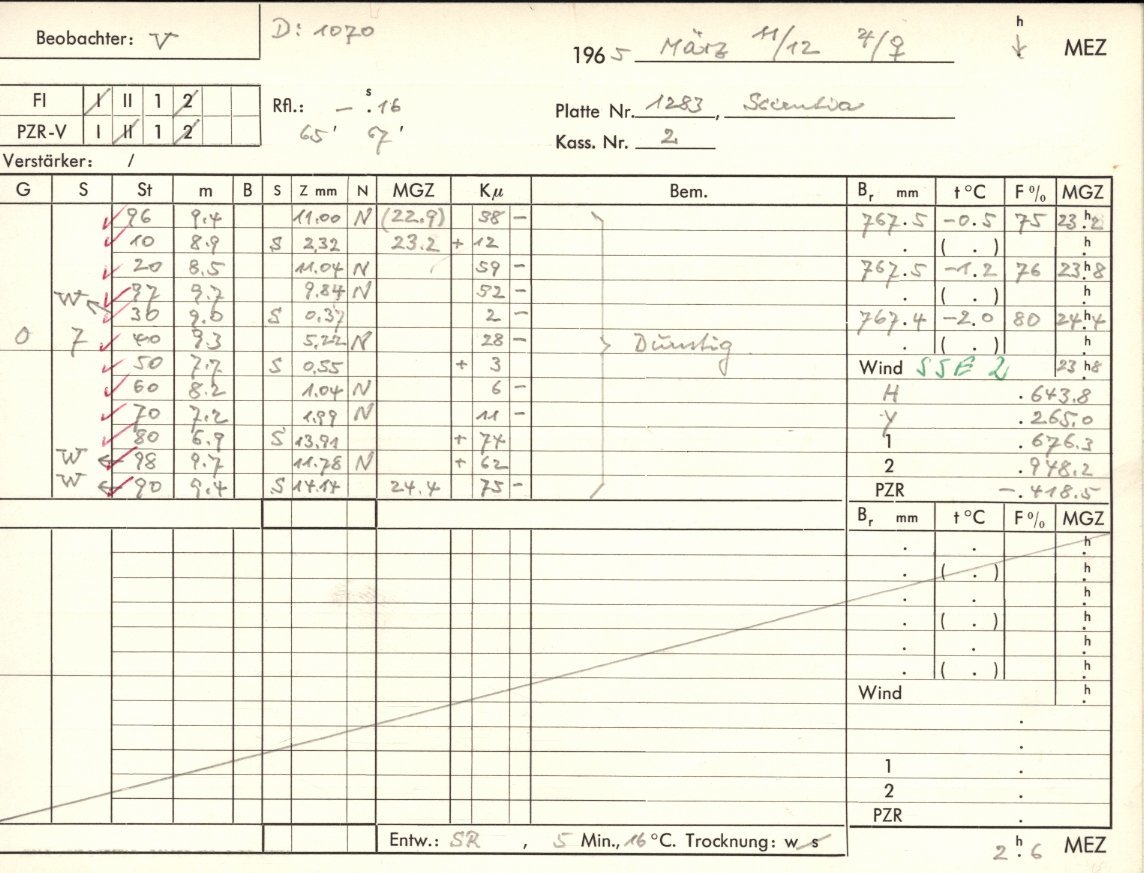 Beobachter: V D: 1070 1965 März 11/12 h MEZ
FI I II 1 2 Rfl.: – s.16 Platte Nr. 1283, Scientia
PZR-V I II 1 2 65' 67' Kass. Nr. 2
Verstärker: /
G S St m B S Z mm N MGZ Kµ Bem. Br mm t °C F % MGZ
96 9.4 11.00 N (22.9) 58 – 767.5 –0.5 75 23.h2
10 8.9 S 2,32 23.2 + 12 . ( . ) h.
20 8.5 11.04 N 59 – 767.5 –1.2 76 23h8
W 97 9.7 9.84 N 52 – . ( . ) h.
30 9.0 S 0,37 2 – 767.4 –2.0 80 24h4
0 7 40 9.3 5,22 N 28 – Dunstig . ( . ) h.
50 7.7 S 0,55 + 3 Wind SSE 2 23h8
60 8.2 1.04 N 6 – H .643.8
70 7.2 1,99 N 11 – Y .265.0
80 6.9 S 13,91 + 74 1 .676.3
W 98 9.7 11.78 N + 62 2 .948.2
W 90 9.4 S 14.14 24.4 75 – PZR –.418.5
Br mm t °C F % MGZ
. . h.
. ( . ) h.
. . h.
. ( . ) h.
. . h.
. ( . ) h.
Wind h.
.
.
1 .
2 .
PZR .
Entw.: SR , 5 Min., 16 °C. Trocknung: w s 2h.6 MEZ